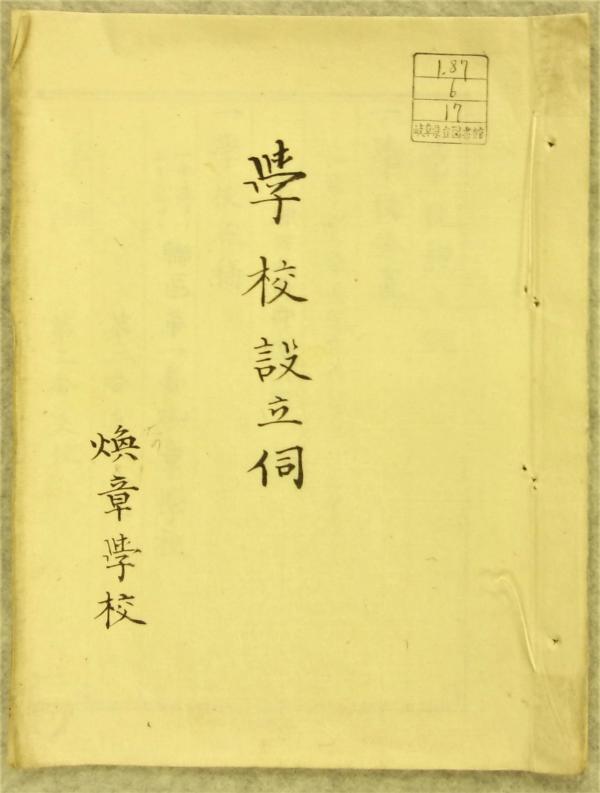 1.87
6
17
岐阜県立図書館
學校設立伺
煥章学校